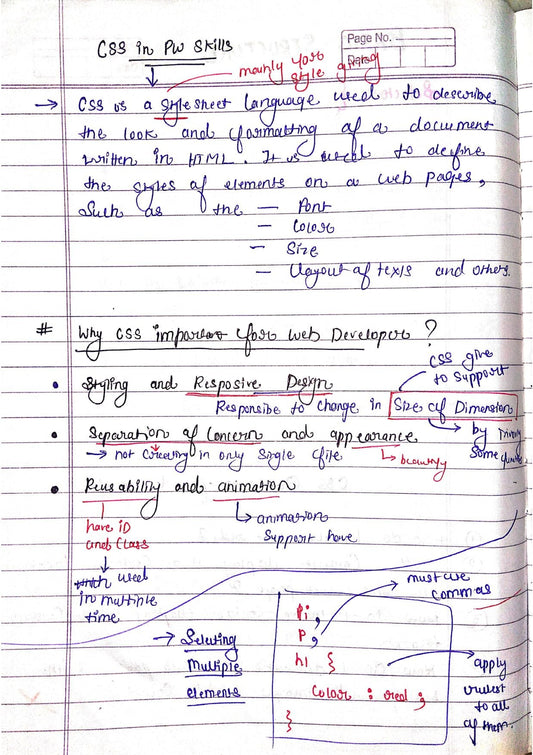 CSS in PW Skills
Page No.
Date
mainly for style giving
→ CSS is a stylesheet language used to describe
the look and formatting of a document
written in HTML. It is used to define
the styles of elements on a web pages,
Such as the — Font
— Colors
— Size
— Layout of texts and others.
# Why CSS important for web Developer ?
CSS give
to support
• Styling and Resposive Design
Responsibe to change in Size of Dimension
• Separation of Concern and appearance
→ not creating in only single file
↳ beautify
by
some
• Reusability and animation
have ID
and Class
↳ animation
support have
used
in multiple
time
must use
commas
→ Selecting
Multiple
elements
Pi,
P,
h1 {
Color : red ;
}
apply
to all
of them.